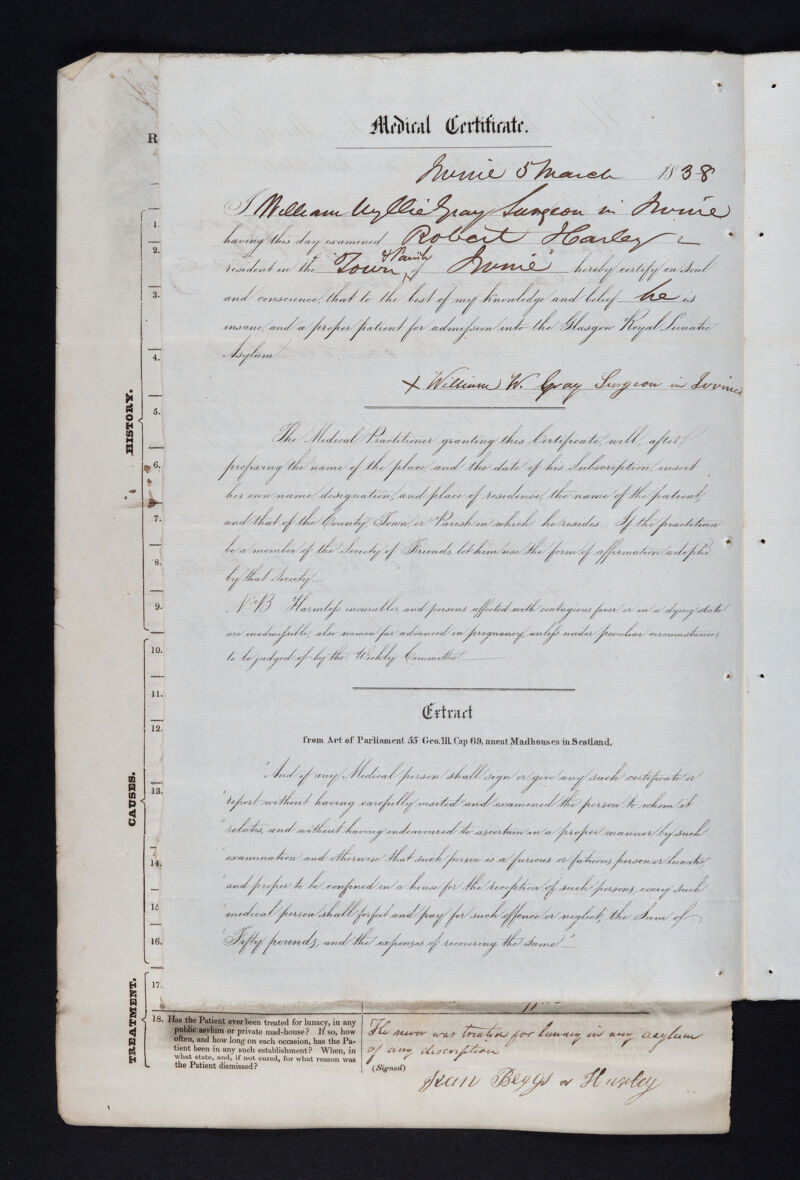 Medical Certificate.
Irvine 5 March 1838
I William Wyllie Gray Surgeon in Irvine
having this day examined Robert Harley
resident in the Town & Parish of Irvine hereby certify on soul
and conscience, that to the best of my knowledge and belief he is
insane, and a proper patient for admission into the Glasgow Royal Lunatic
Asylum
x William W. Gray Surgeon in Irvine
The Medical Practitioner granting this Certificate, will, after
prefixing the name of the place, and the date of his Subscription, insert
his own name, designation, and place of residence, the name of the patient,
and that of the County, Town, or Parish in which he resides. If the practitioner
be a member of the Society of Friends, let him use the form of affirmation adopted
by that Society.
N.B. Harmless incurables, and persons affected with contagious fever or in a dying state
are inadmissible, also women far advanced in pregnancy, unless under peculiar circumstances
to be judged of by the Weekly Committee.
Extract
from Act of Parliament 55 Geo. III, Cap 69, anent Madhouses in Scotland.
"And if any Medical person shall sign or give any such certificate or
"report without having carefully visited and examined the person to whom it
"relates, and without having endeavoured to ascertain in a proper manner by such
"examination and otherwise that such person is a furious or fatuous person or lunatic,
"and proper to be confined in a house for the reception of such persons, every such
"medical person shall forfeit and pay for such offence or neglect, the Sum of
"Fifty pounds, and the expenses of recovering the same"
R
HISTORY.
1.
2.
3.
4.
5.
6.
7.
8.
9.
CAUSES.
10.
11.
12.
13.
14.
15
16.
TREATMENT.
17.
18. Has the Patient ever been treated for lunacy, in any
public asylum or private mad-house? If so, how
often, and how long on each occasion, has the Pa-
tient been in any such establishment? When, in
what state, and, if not cured, for what reason was
the Patient dismissed?
He never was treated for lunacy in any asylum
of any discription
(Signed)
Jean Beggs or Harley